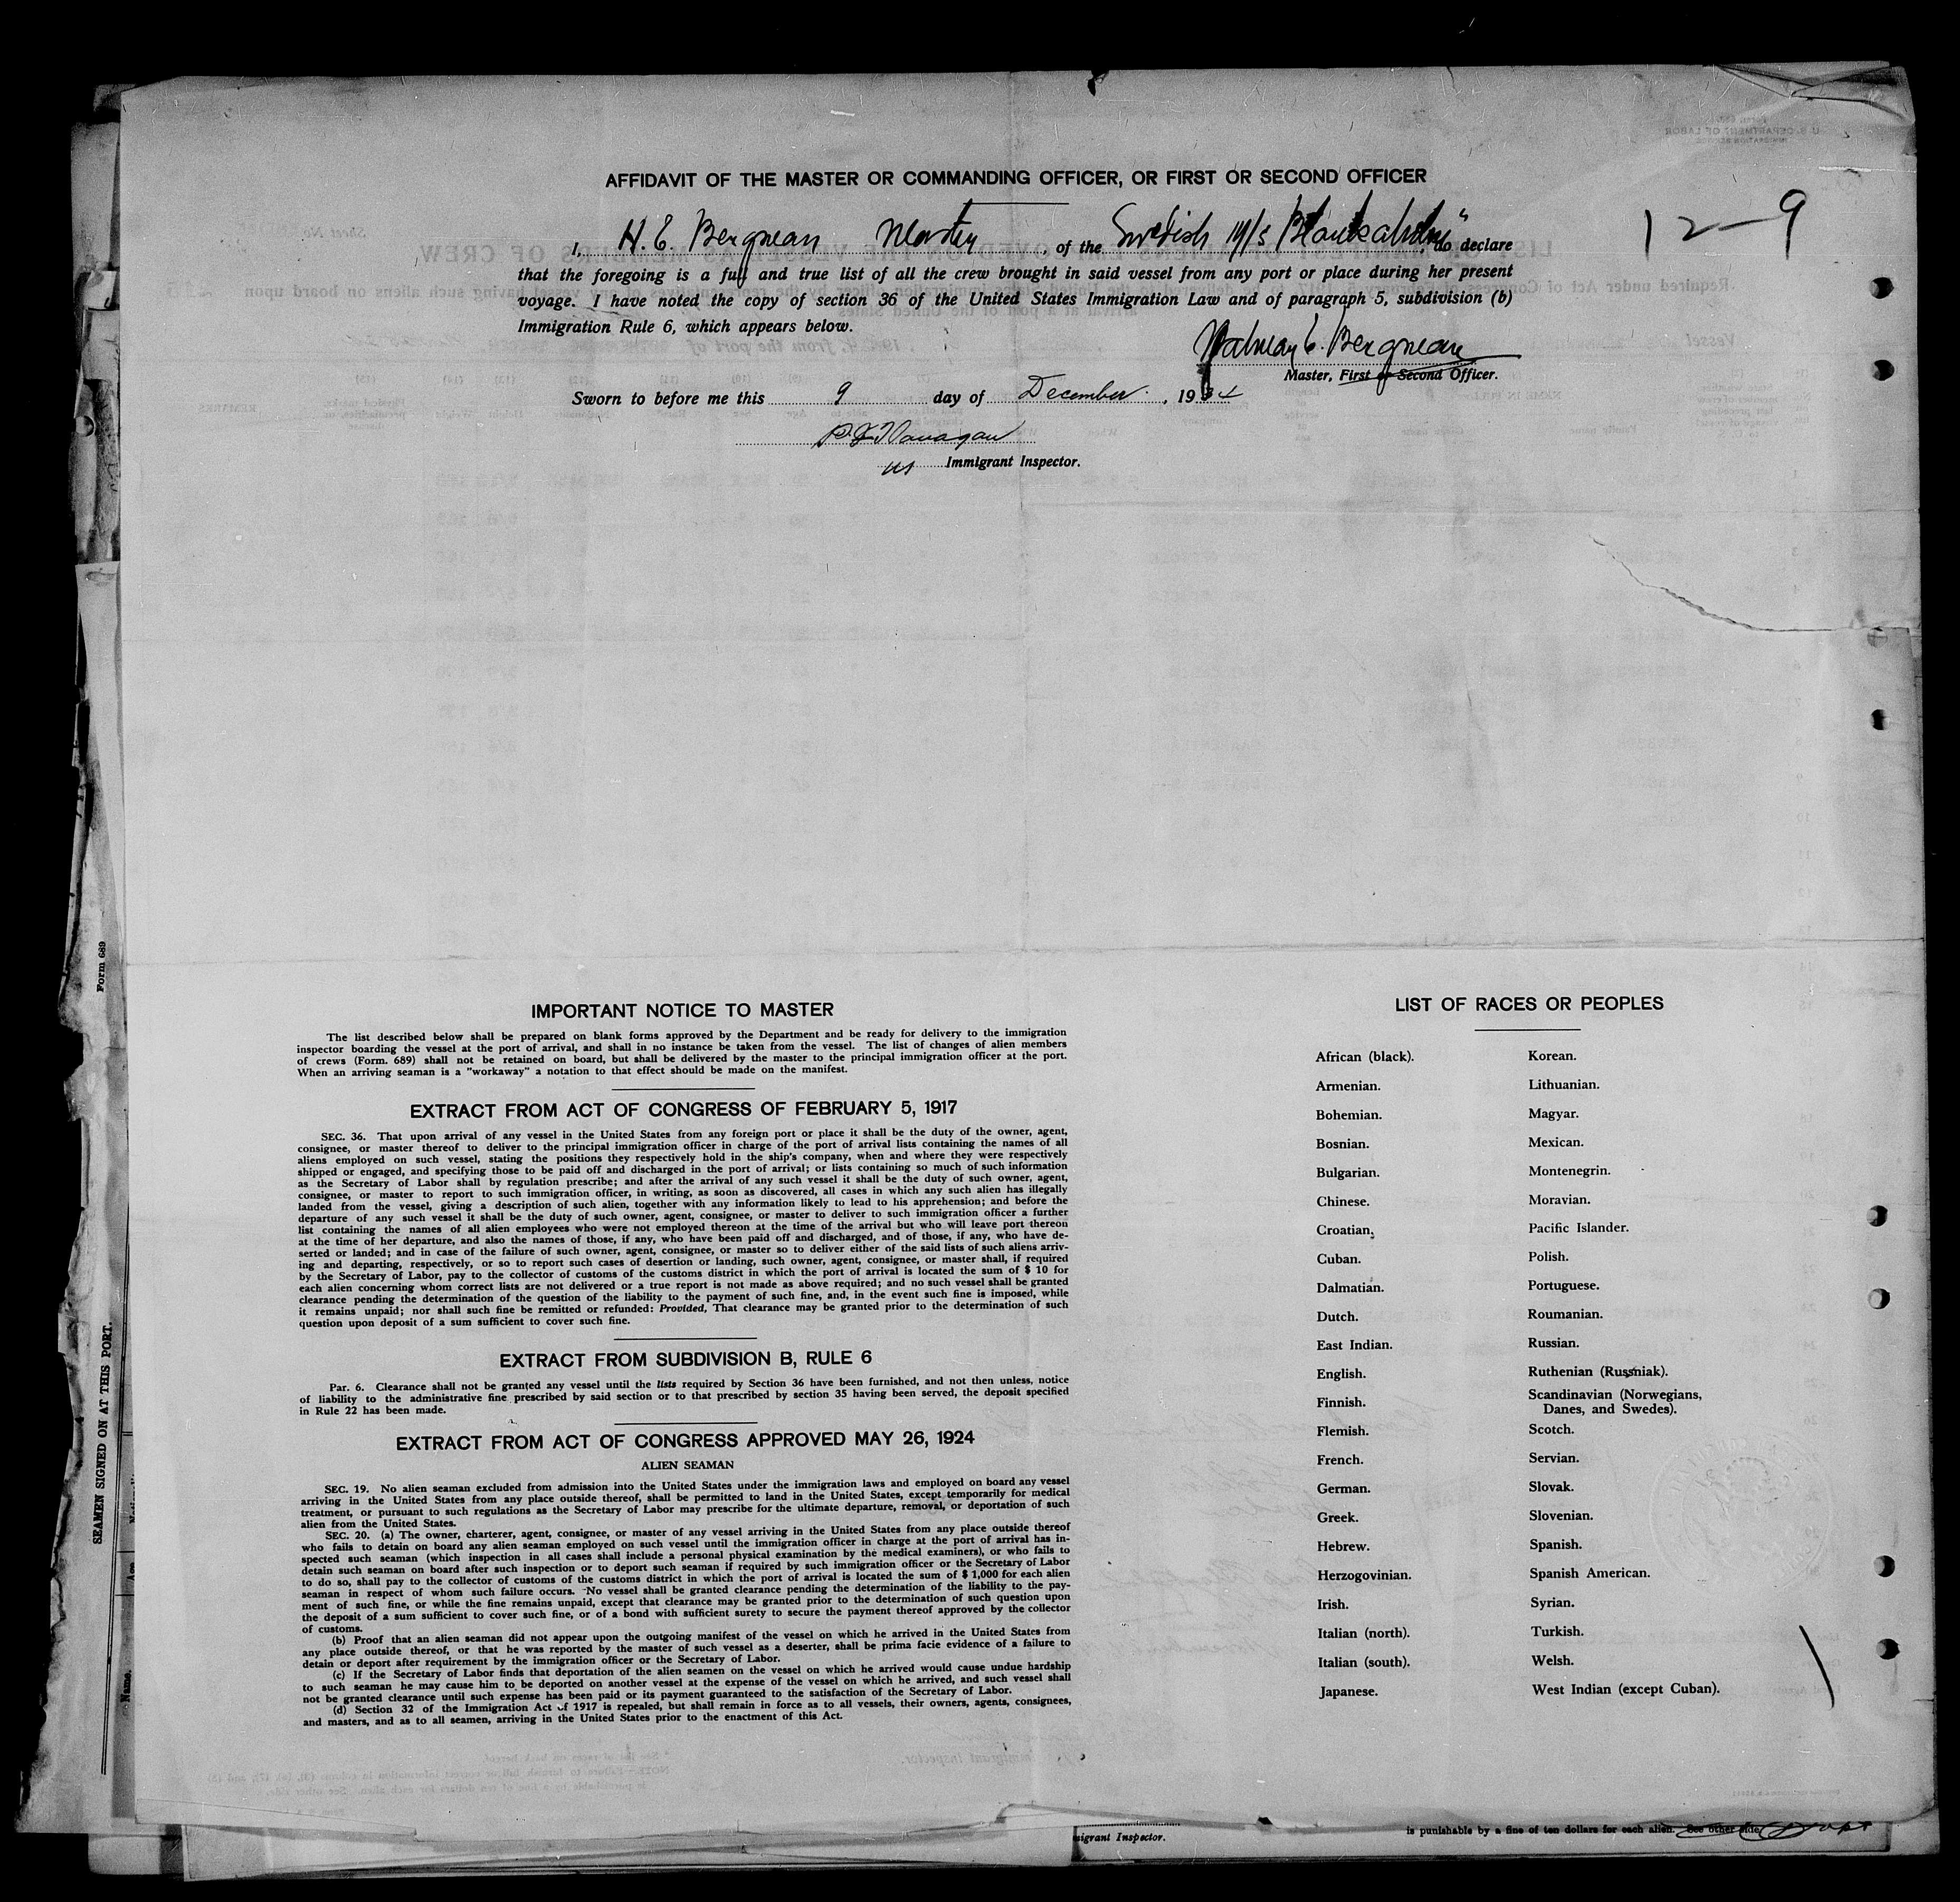 AFFIDAVIT OF THE MASTER OR COMMANDING OFFICER, OR FIRST OR SECOND OFFICER
12-9
I, H. E. Bergman Master, of the Swedish M/S Blankaholm", do declare
that the foregoing is a full and true list of all the crew brought in said vessel from any port or place during her present
voyage. I have noted the copy of section 36 of the United States Immigration Law and of paragraph 5, subdivision (b)
Immigration Rule 6, which appears below.
E. Bergman
Master, First or Second Officer.
Sworn to before me this 9 day of December, 1934
US Immigrant Inspector.
IMPORTANT NOTICE TO MASTER
The list described below shall be prepared on blank forms approved by the Department and be ready for delivery to the immigration
inspector boarding the vessel at the port of arrival, and shall in no instance be taken from the vessel. The list of changes of alien members
of crews (Form. 689) shall not be retained on board, but shall be delivered by the master to the principal immigration officer at the port.
When an arriving seaman is a "workaway" a notation to that effect should be made on the manifest.
EXTRACT FROM ACT OF CONGRESS OF FEBRUARY 5, 1917
SEC. 36. That upon arrival of any vessel in the United States from any foreign port or place it shall be the duty of the owner, agent,
consignee, or master thereof to deliver to the principal immigration officer in charge of the port of arrival lists containing the names of all
aliens employed on such vessel, stating the positions they respectively hold in the ship's company, when and where they were respectively
shipped or engaged, and specifying those to be paid off and discharged in the port of arrival; or lists containing so much of such information
as the Secretary of Labor shall by regulation prescribe; and after the arrival of any such vessel it shall be the duty of such owner, agent,
consignee, or master to report to such immigration officer, in writing, as soon as discovered, all cases in which any such alien has illegally
landed from the vessel, giving a description of such alien, together with any information likely to lead to his apprehension; and before the
departure of any such vessel it shall be the duty of such owner, agent, consignee, or master to deliver to such immigration officer a further
list containing the names of all alien employees who were not employed thereon at the time of the arrival but who will leave port thereon
at the time of her departure, and also the names of those, if any, who have been paid off and discharged, and of those, if any, who have de-
serted or landed; and in case of the failure of such owner, agent, consignee, or master so to deliver either of the said lists of such aliens arriv-
ing and departing, respectively, or so to report such cases of desertion or landing, such owner, agent, consignee, or master shall, if required
by the Secretary of Labor, pay to the collector of customs of the customs district in which the port of arrival is located the sum of $ 10 for
each alien concerning whom correct lists are not delivered or a true report is not made as above required; and no such vessel shall be granted
clearance pending the determination of the question of the liability to the payment of such fine, and, in the event such fine is imposed, while
it remains unpaid; nor shall such fine be remitted or refunded: Provided, That clearance may be granted prior to the determination of such
question upon deposit of a sum sufficient to cover such fine.
EXTRACT FROM SUBDIVISION B, RULE 6
Par. 6. Clearance shall not be granted any vessel until the lists required by Section 36 have been furnished, and not then unless, notice
of liability to the administrative fine prescribed by said section or to that prescribed by section 35 having been served, the deposit specified
in Rule 22 has been made.
EXTRACT FROM ACT OF CONGRESS APPROVED MAY 26, 1924
ALIEN SEAMAN
SEC. 19. No alien seaman excluded from admission into the United States under the immigration laws and employed on board any vessel
arriving in the United States from any place outside thereof, shall be permitted to land in the United States, except temporarily for medical
treatment, or pursuant to such regulations as the Secretary of Labor may prescribe for the ultimate departure, removal, or deportation of such
alien from the United States.
SEC. 20. (a) The owner, charterer, agent, consignee, or master of any vessel arriving in the United States from any place outside thereof
who fails to detain on board any alien seaman employed on such vessel until the immigration officer in charge at the port of arrival has in-
spected such seaman (which inspection in all cases shall include a personal physical examination by the medical examiners), or who fails to
detain such seaman on board after such inspection or to deport such seaman if required by such immigration officer or the Secretary of Labor
to do so, shall pay to the collector of customs of the customs district in which the port of arrival is located the sum of $ 1,000 for each alien
seaman in respect of whom such failure occurs. No vessel shall be granted clearance pending the determination of the liability to the pay-
ment of such fine, or while the fine remains unpaid, except that clearance may be granted prior to the determination of such question upon
the deposit of a sum sufficient to cover such fine, or of a bond with sufficient surety to secure the payment thereof approved by the collector
of customs.
(b) Proof that an alien seaman did not appear upon the outgoing manifest of the vessel on which he arrived in the United States from
any place outside thereof, or that he was reported by the master of such vessel as a deserter, shall be prima facie evidence of a failure to
detain or deport after requirement by the immigration officer or the Secretary of Labor.
(c) If the Secretary of Labor finds that deportation of the alien seamen on the vessel on which he arrived would cause undue hardship
to such seaman he may cause him to be deported on another vessel at the expense of the vessel on which he arrived, and such vessel shall
not be granted clearance until such expense has been paid or its payment guaranteed to the satisfaction of the Secretary of Labor.
(d) Section 32 of the Immigration Act of 1917 is repealed, but shall remain in force as to all vessels, their owners, agents, consignees,
and masters, and as to all seamen, arriving in the United States prior to the enactment of this Act.
LIST OF RACES OR PEOPLES
African (black). Korean.
Armenian. Lithuanian.
Bohemian. Magyar.
Bosnian. Mexican.
Bulgarian. Montenegrin.
Chinese. Moravian.
Croatian. Pacific Islander.
Cuban. Polish.
Dalmatian. Portuguese.
Dutch. Roumanian.
East Indian. Russian.
English. Ruthenian (Russniak).
Finnish. Scandinavian (Norwegians,
Danes, and Swedes).
Flemish. Scotch.
French. Servian.
German. Slovak.
Greek. Slovenian.
Hebrew. Spanish.
Herzogovinian. Spanish American.
Irish. Syrian.
Italian (north). Turkish.
Italian (south). Welsh.
Japanese. West Indian (except Cuban).
Form 689
SEAMEN SIGNED ON AT THIS PORT.
Name.
Age
migrant Inspector.
is punishable by a fine of ten dollars for each alien. See other side